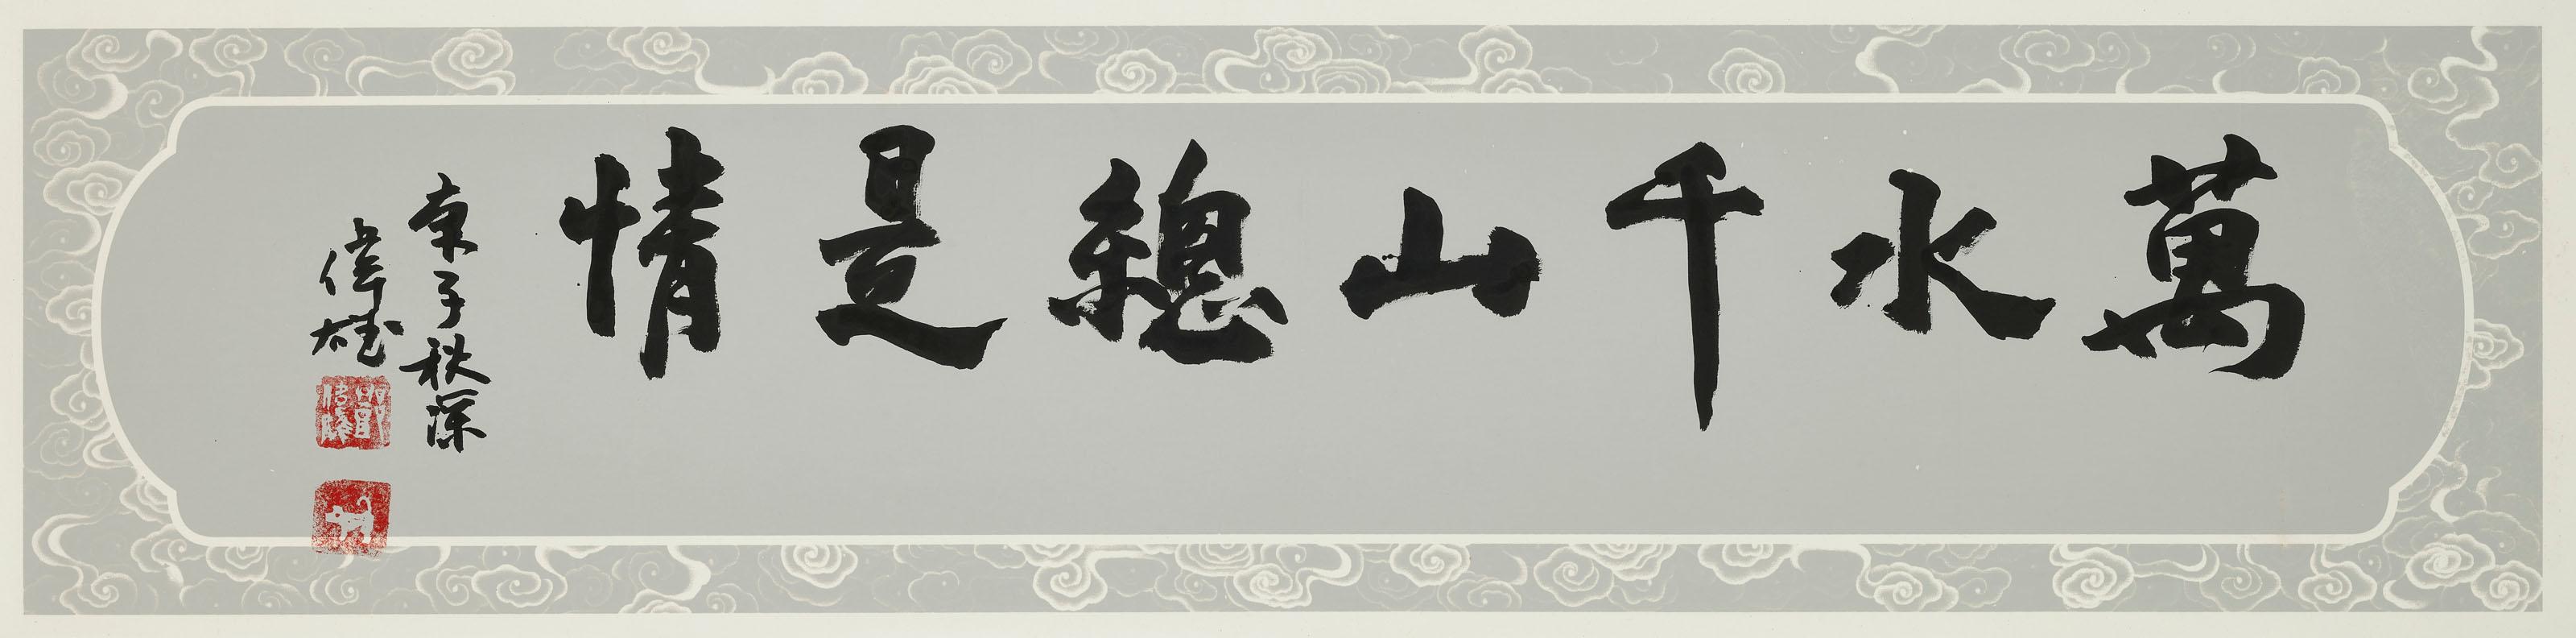 萬水千山總是情
庚子秋深
偉雄
鄧偉雄